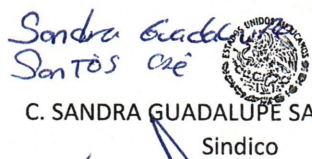 Sandra Guadalupe
Santos Czé
ESTADOS UNIDOS MEXICANOS
C. SANDRA GUADALUPE SA
Sindico